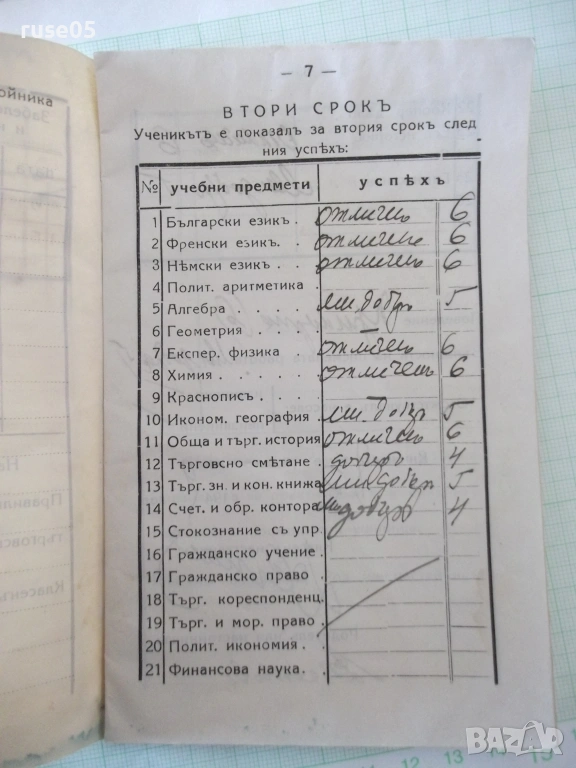 ruse05
— 7 —
ВТОРИ СРОКЪ
Ученикътъ е показалъ за втория срокъ след
ния успѣхъ:
№ учебни предмети успѣхъ
1 Български езикъ . отличенъ 6
2 Френски езикъ . . отличенъ 6
3 Нѣмски езикъ . . отличенъ 6
4 Полит. аритметика .
5 Алгебра . . . . мн. добъръ 5
6 Геометрия . . . .
7 Експер. физика . . отличенъ 6
8 Химия . . . . . отличенъ 6
9 Краснописъ . . .
10 Иконом. география . мн. добъръ 5
11 Обща и търг. история отличенъ 6
12 Търговско смѣтане . добъръ 4
13 Търг. зн. и кон. книжа мн. добъръ 5
14 Счет. и обр. контора добъръ 4
15 Стокознание съ упр.
16 Гражданско учение .
17 Гражданско право .
18 Търг. кореспонденц.
19 Търг. и мор. право .
20 Полит. икономия . .
21 Финансова наука. .
ойника
Забеле
и
На
Правилн
търговс
Класенъ
12 13 14 15
БАЗАР
bazar.bg